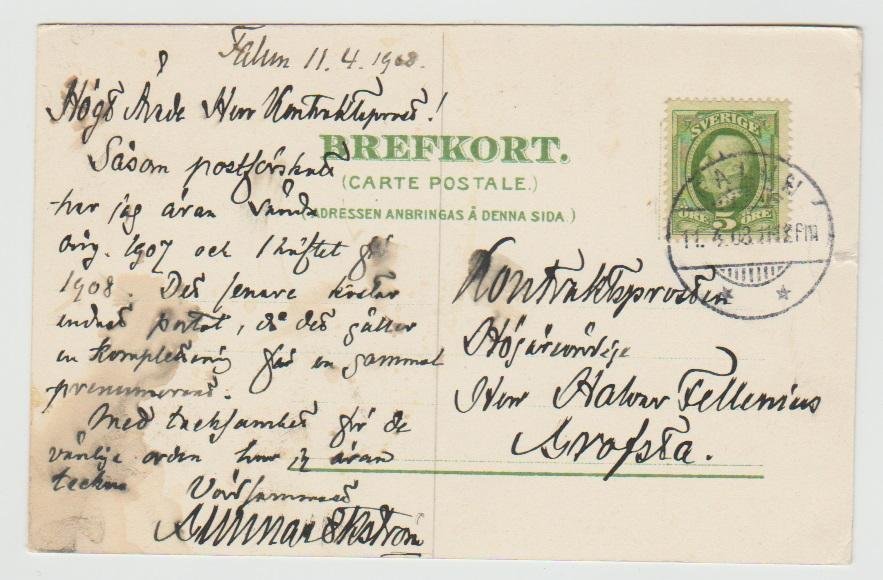 Falun 11.4.1908.
Högt Ärade Herr Kontraktsprost!
Såsom postförskott
har jag äran sända
årg. 1907 och 1 häftet för
1908. Det senare kostar
endast portot, då det gäller
en komplettering för en gammal
prenumerant.
Med tacksamhet för de
vänliga orden har jag äran
teckna
Vördsammast
Gunnar Ekström
BREFKORT.
(CARTE POSTALE.)
(ADRESSEN ANBRINGAS Å DENNA SIDA.)
SVERIGE
ÖRE 5 ÖRE
FALUN
11. 4. 08
Kontraktsprosten
Högärevördige
Herr Halvar Fellenius